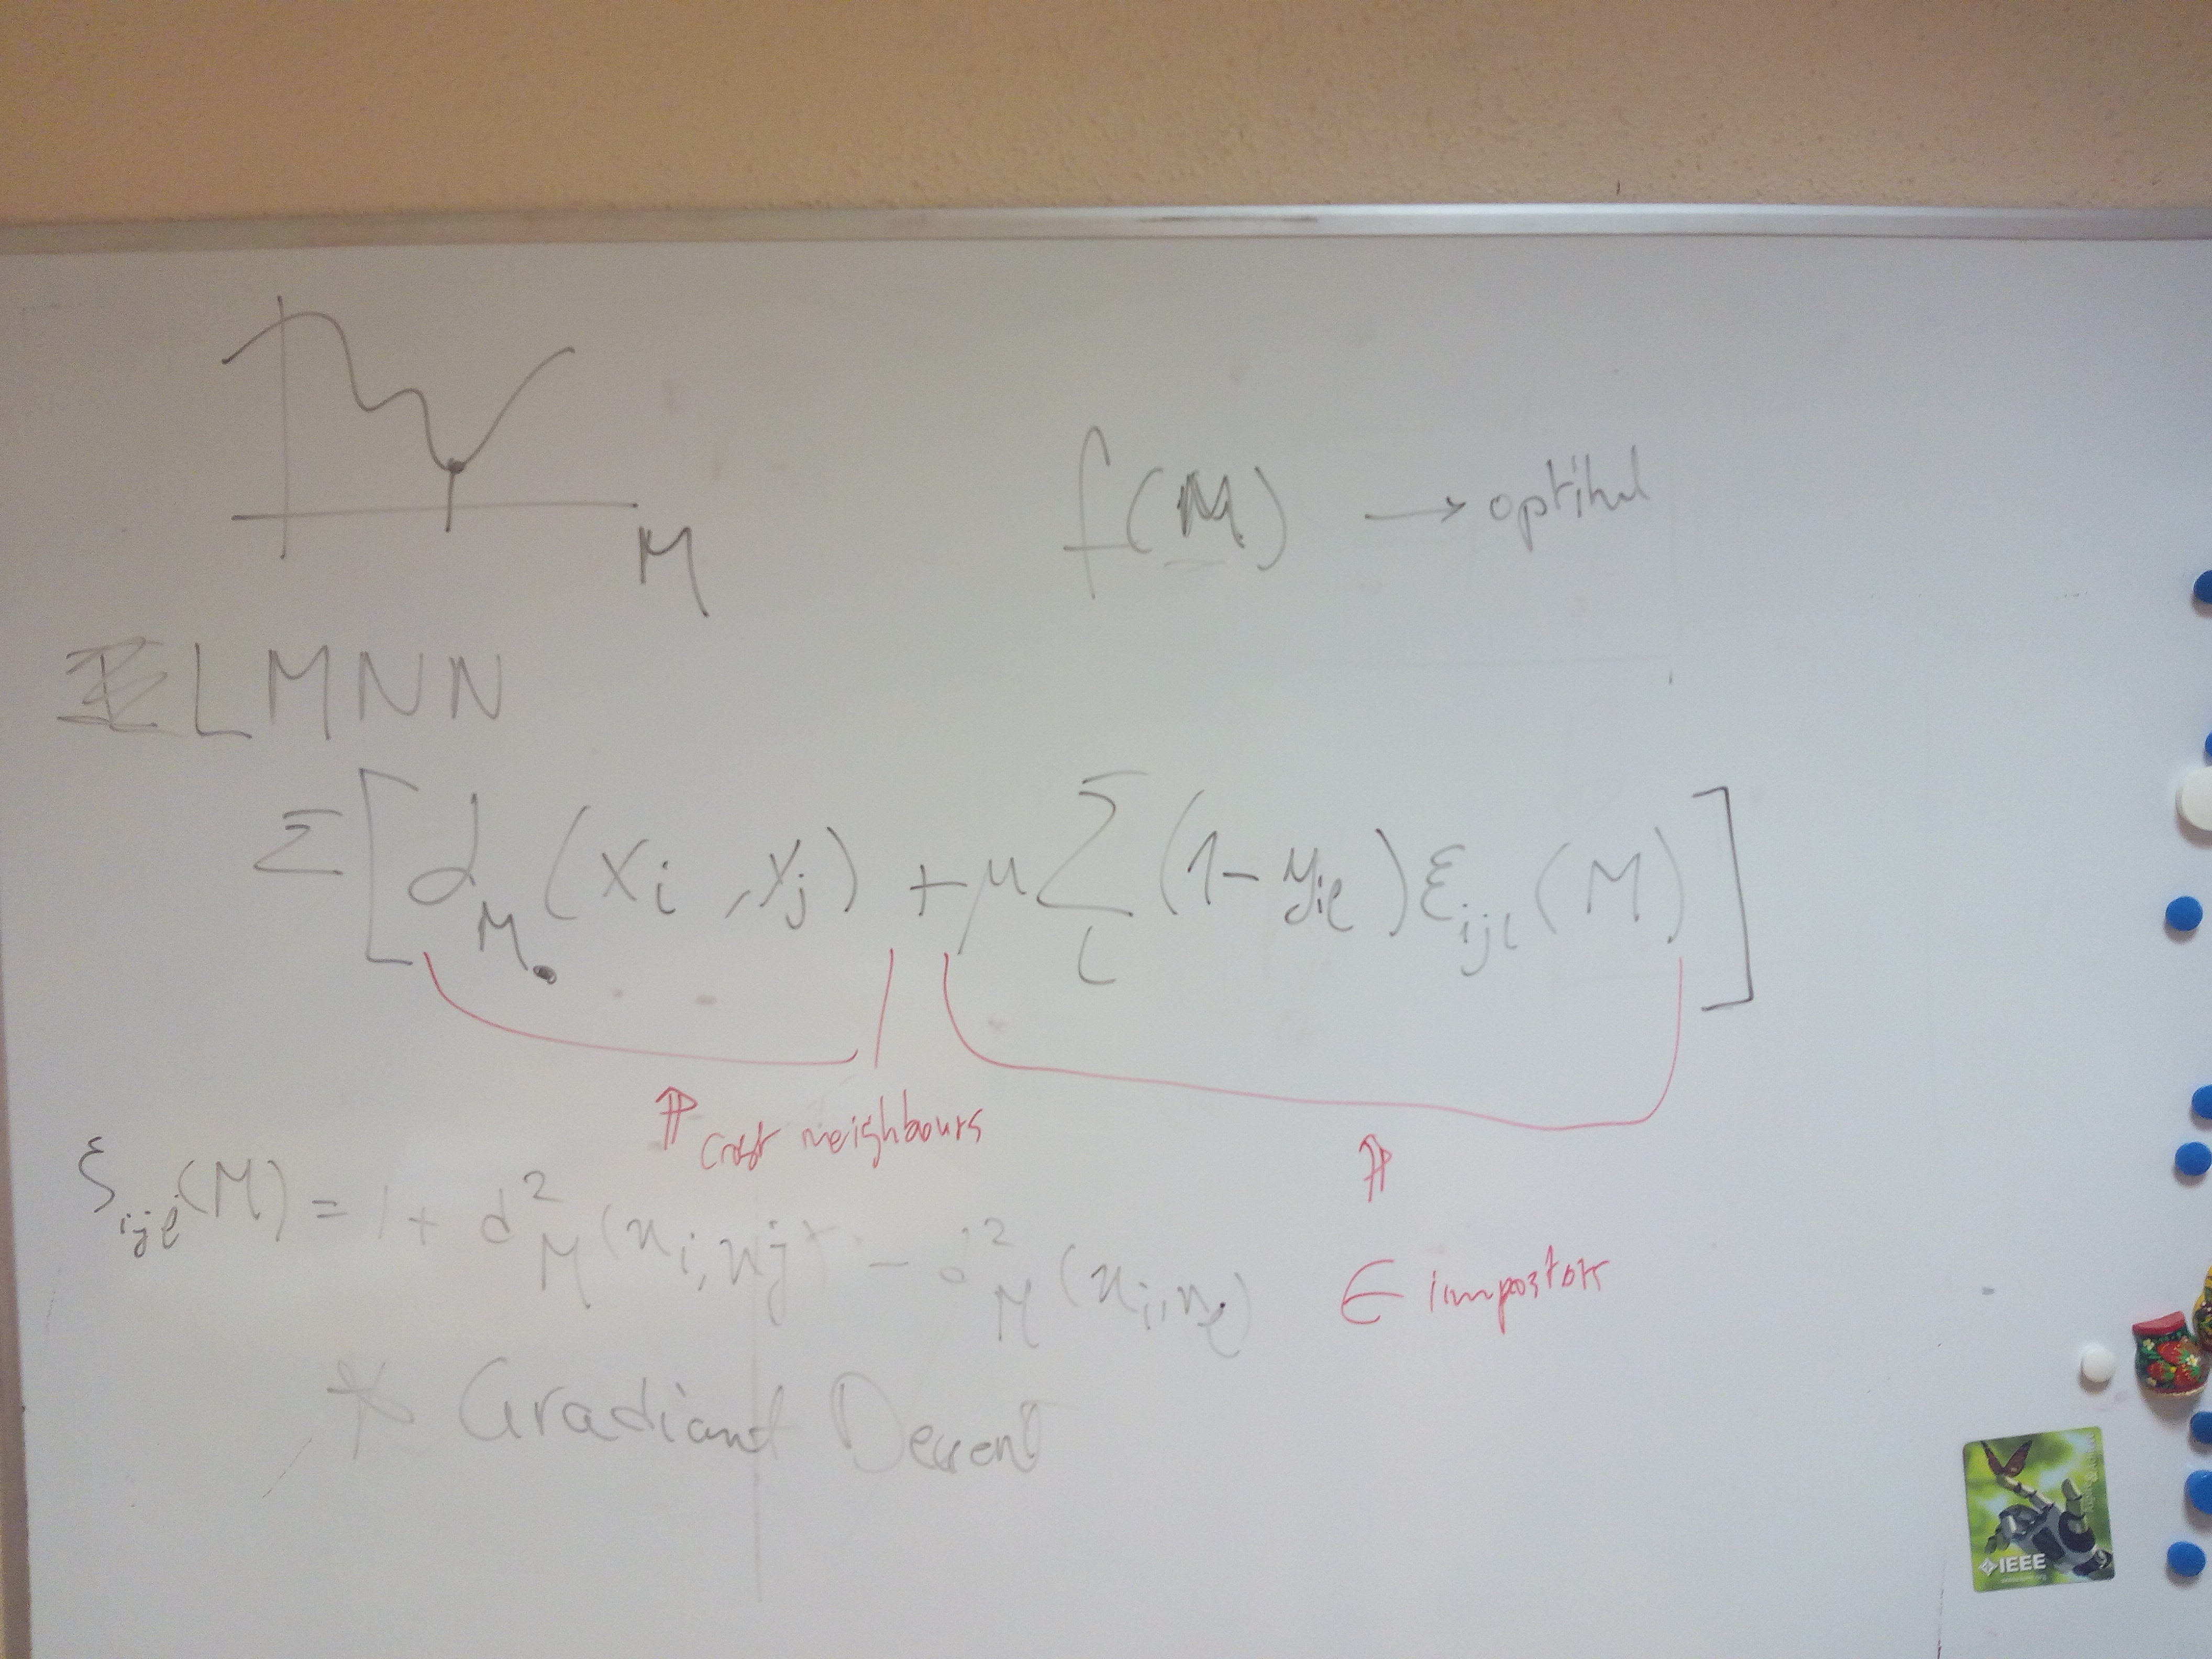 M
f(M) → optimal
LMNN
Σ[d_M(x_i, x_j) + μ Σ_l (1 - y_il) ε_ijl(M)]
⇑ cost neighbours
⇑
ξ_ijl(M) = 1 + d²_M(x_i, x_j) - d²_M(x_i, x_l)
∈ impostors
* Gradiant Descent
IEEE